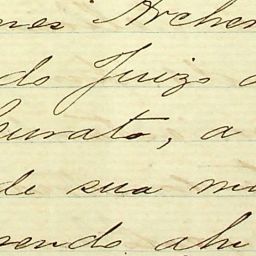 nes Archer
do Juizo d
Curato, a
de sua mu
sendo ahi